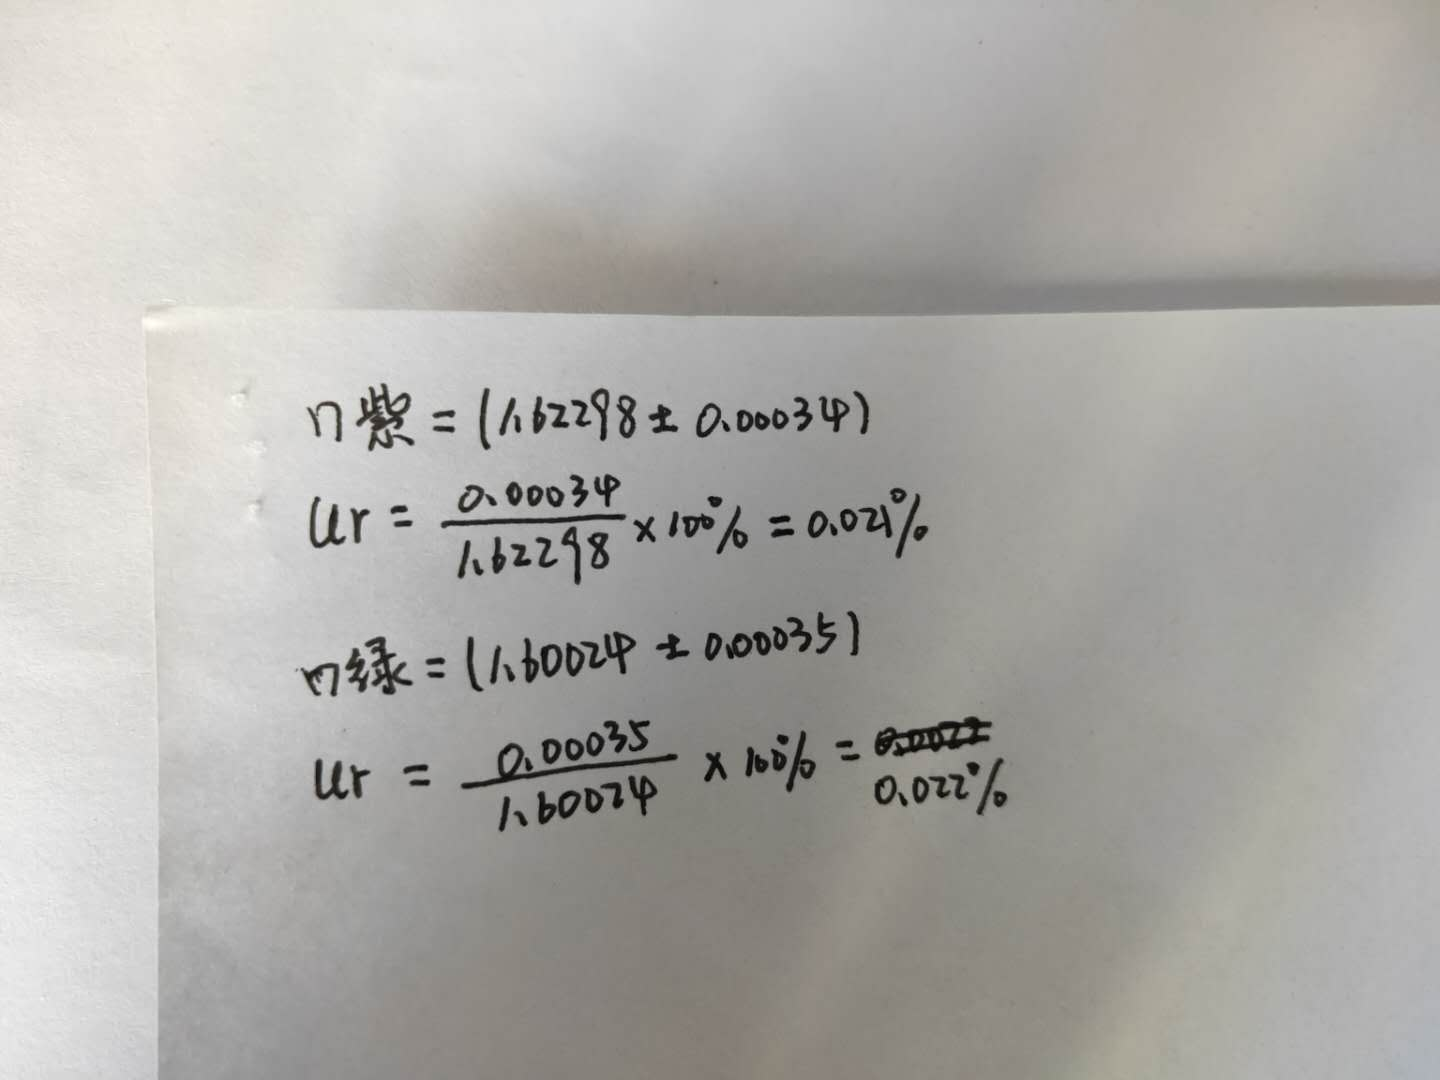 n紫 = (1.62298 ± 0.00034)
Ur = 0.00034/1.62298 × 100% = 0.021%
n绿 = (1.60024 ± 0.00035)
Ur = 0.00035/1.60024 × 100% = 0.022%